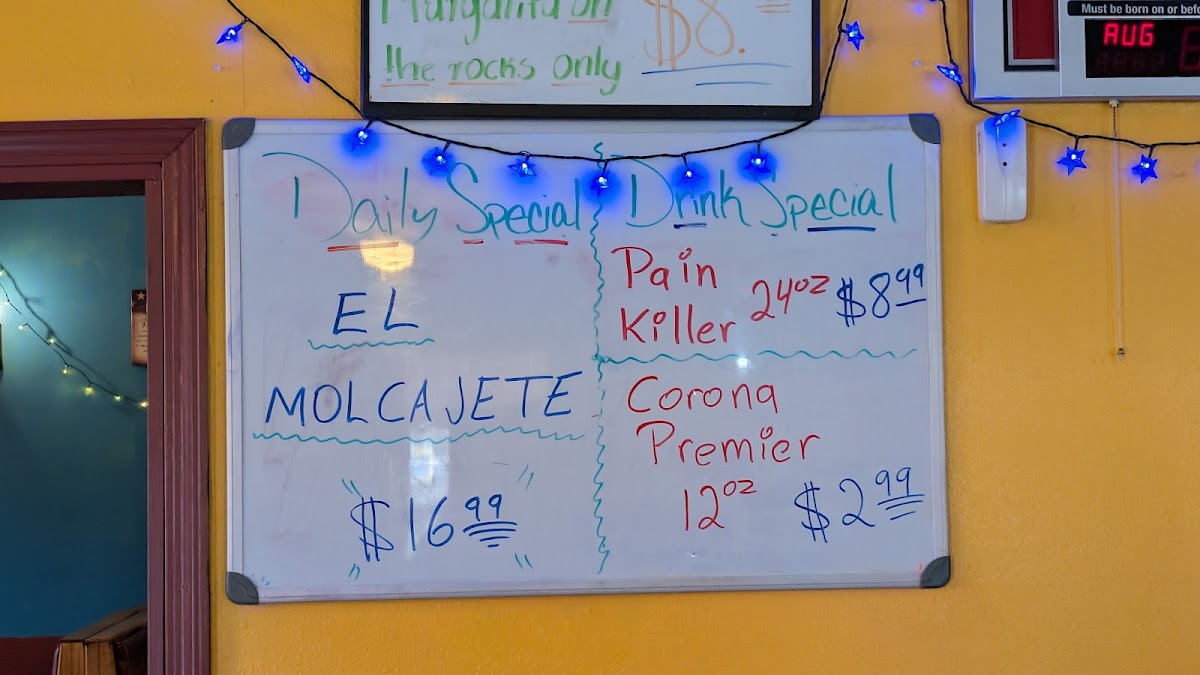 Margarita on $8.
the rocks only
Must be born on or befo
AUG
Daily Special
EL
MOLCAJETE
$16.99
Drink Special
Pain
Killer 24oz $8.99
Corona
Premier
12oz $2.99